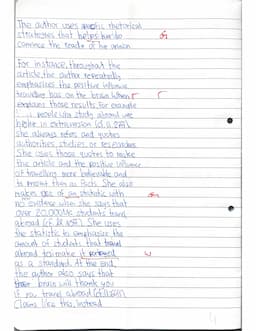 The author uses specific rhetorical
strategies that helps her to
convince the reader of her opinion
For instance, throughout the
article, the author repeatedly
emphasizes the positive influence
travelling has on the brain. When
explains those results, for example
"... people who study abroad are
higher in extraversion"
she always refers and quotes
authorities, studies or researchers
She uses those quotes to make
the article and the positive influence
of travelling more believable and
to present them as facts. She also
makes use of an statistic with
no evidence when she says that
over students travel
abroad She uses
the statistic to emphasize the
amount of students that travel
abroad to make it
as a standard. At the end,
the author also says that
brain will thank you
if you travel abroad
Claims like this, instead